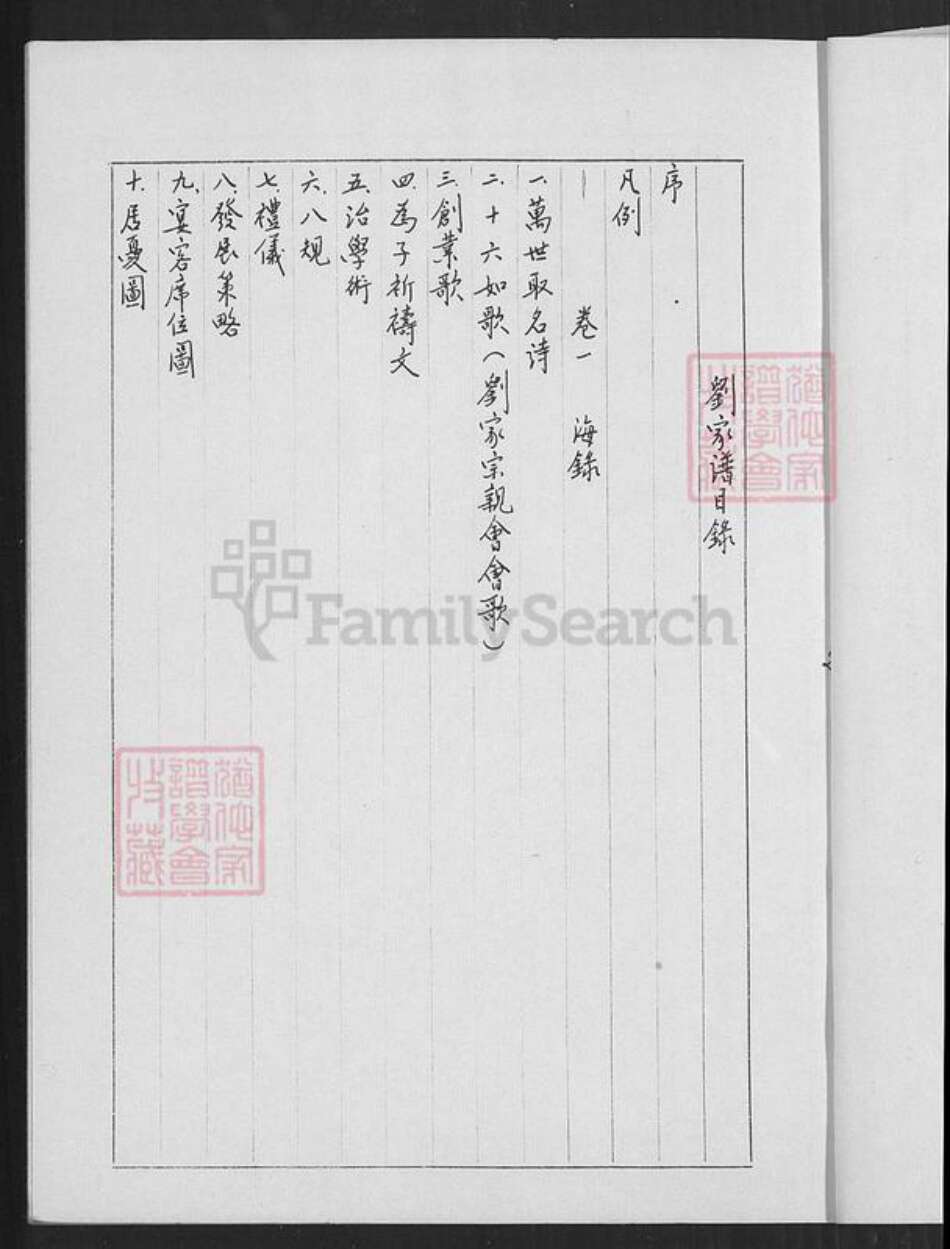 劉家譜目錄
序
凡例
卷一 海錄
一、萬世取名诗
二、十六如歌(劉家宗親會會歌)
三、創業歌
四、為子祈禱文
五、治學術
六、八規
七、禮儀
八、發展策略
九、宴客席位圖
十、居憂圖
FamilySearch
猶他家
譜學會
收藏